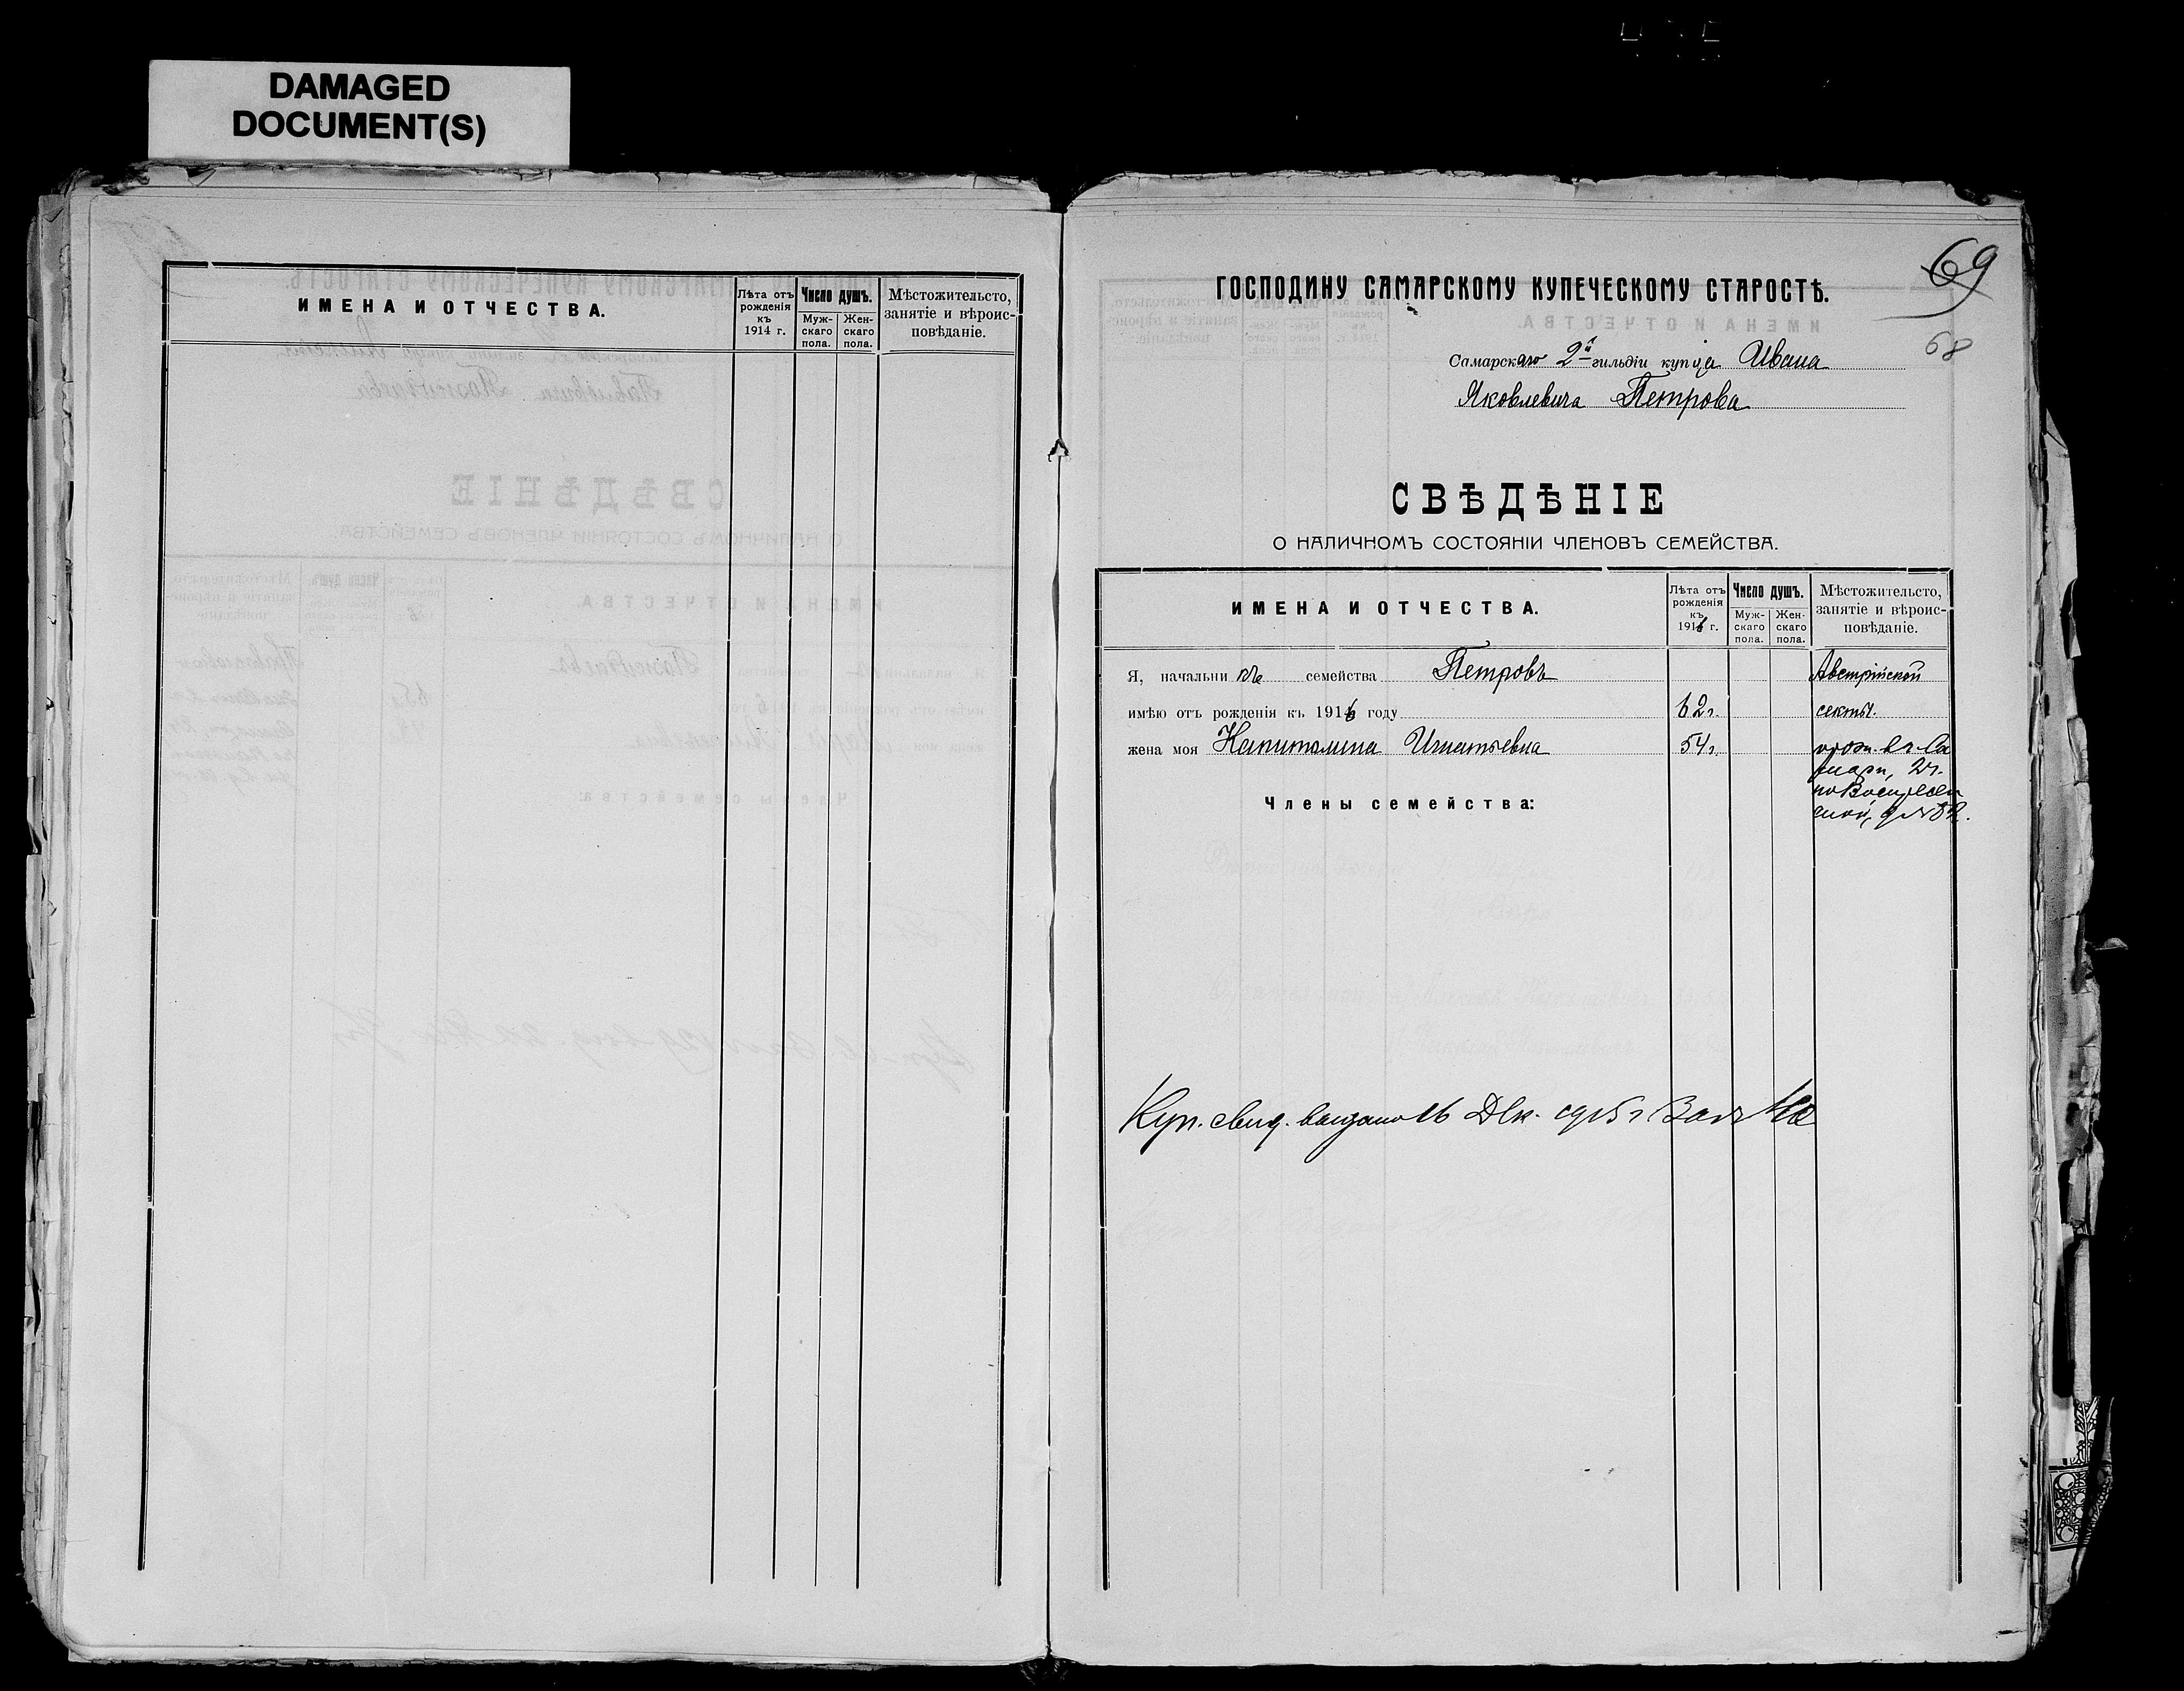 DAMAGED
DOCUMENT(S)
ИМЕНА И ОТЧЕСТВА.
Лѣта отъ
рожденія
къ
1914 г.
Число душъ.
Муж-
скаго
пола.
Жен-
скаго
пола.
Мѣстожительсто,
занятіе и вѣроис-
повѣданіе.
69
68
ГОСПОДИНУ САМАРСКОМУ КУПЕЧЕСКОМУ СТАРОСТѢ.
Самарскаго 2й гильдіи купца Ивана
Яковлевича Петрова
СВѢДѢНІЕ
О НАЛИЧНОМЪ СОСТОЯНІИ ЧЛЕНОВЪ СЕМЕЙСТВА.
ИМЕНА И ОТЧЕСТВА.
Лѣта отъ
рожденія
къ
1916 г.
Число душъ.
Муж-
скаго
пола.
Жен-
скаго
пола.
Мѣстожительсто,
занятіе и вѣроис-
повѣданіе.
Я, начальникъ семейства Петровъ Австрійской
имѣю отъ рожденія къ 1916 году 62 г. секты.
жена моя Капитолина Игнатьевна 54 г. прож. в г. Са
марѣ, 2 ч.
по Воскресен
ской, д №
Члены семейства:
Куп. свид. выдано 16 Дек. 1915 г за №